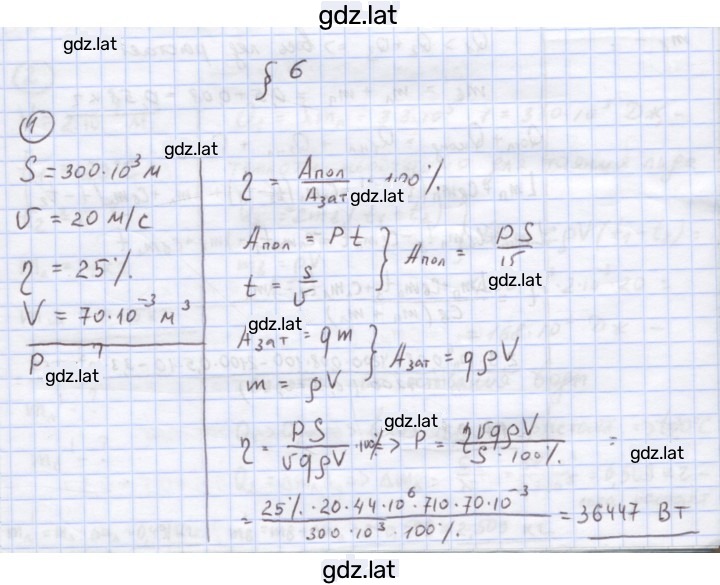 gdz.lat
gdz.lat
§ 6
1
gdz.lat
S = 300·10³ м
υ = 20 м/с
η = 25%
V = 70·10⁻³ м³
P - ?
gdz.lat
η = Aпол / Aзат · 100%
gdz.lat
Aпол = Pt
t = S/υ
} Aпол = PS/υ
gdz.lat
gdz.lat
Aзат = qm
m = ρV
} Aзат = qρV
gdz.lat
η = PS/υqρV · 100% => P = ηυqρV / S·100% =
gdz.lat
= 25%·20·44·10⁶·710·70·10⁻³ / 300·10³·100% = 36447 Вт
gdz.lat